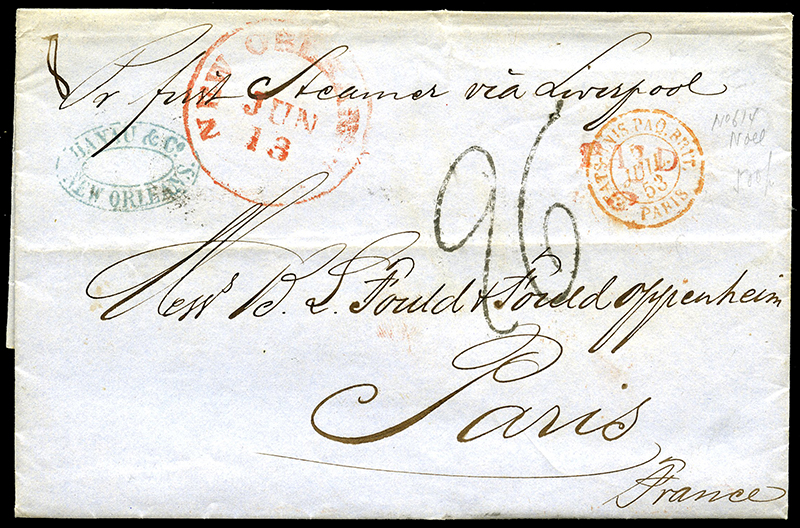 Pr first Steamer via Liverpool
NEW ORLEANS
JUN
13
& Co.
NEW ORLEANS
ETATS-UNIS.PAQ.BRIT.
13
JUIL
53
PARIS
No 614
26
Messrs B. L. Fould & Fould Oppenheim
Paris
France